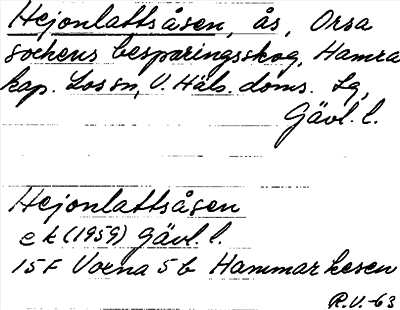 Hejonlattsåsen, ås, Orsa
sockens besparingsskog, Hamra
kap. Los sn, V. Häls. doms. Lg,
Gävl. l.
Hejonlattsåsen
ek (1959) Gävl. l.
15F Voxna 5b Hammarkesen
R.V. -63